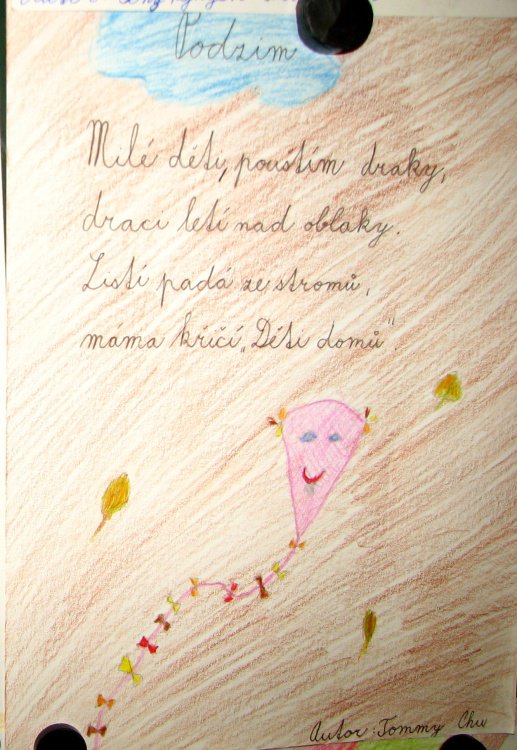 Podzim
Milé děti, poustím draky,
draci letí nad oblaky.
Listí padá ze stromů,
máma křičí „Děti domů".
Autor: Tommy Chu